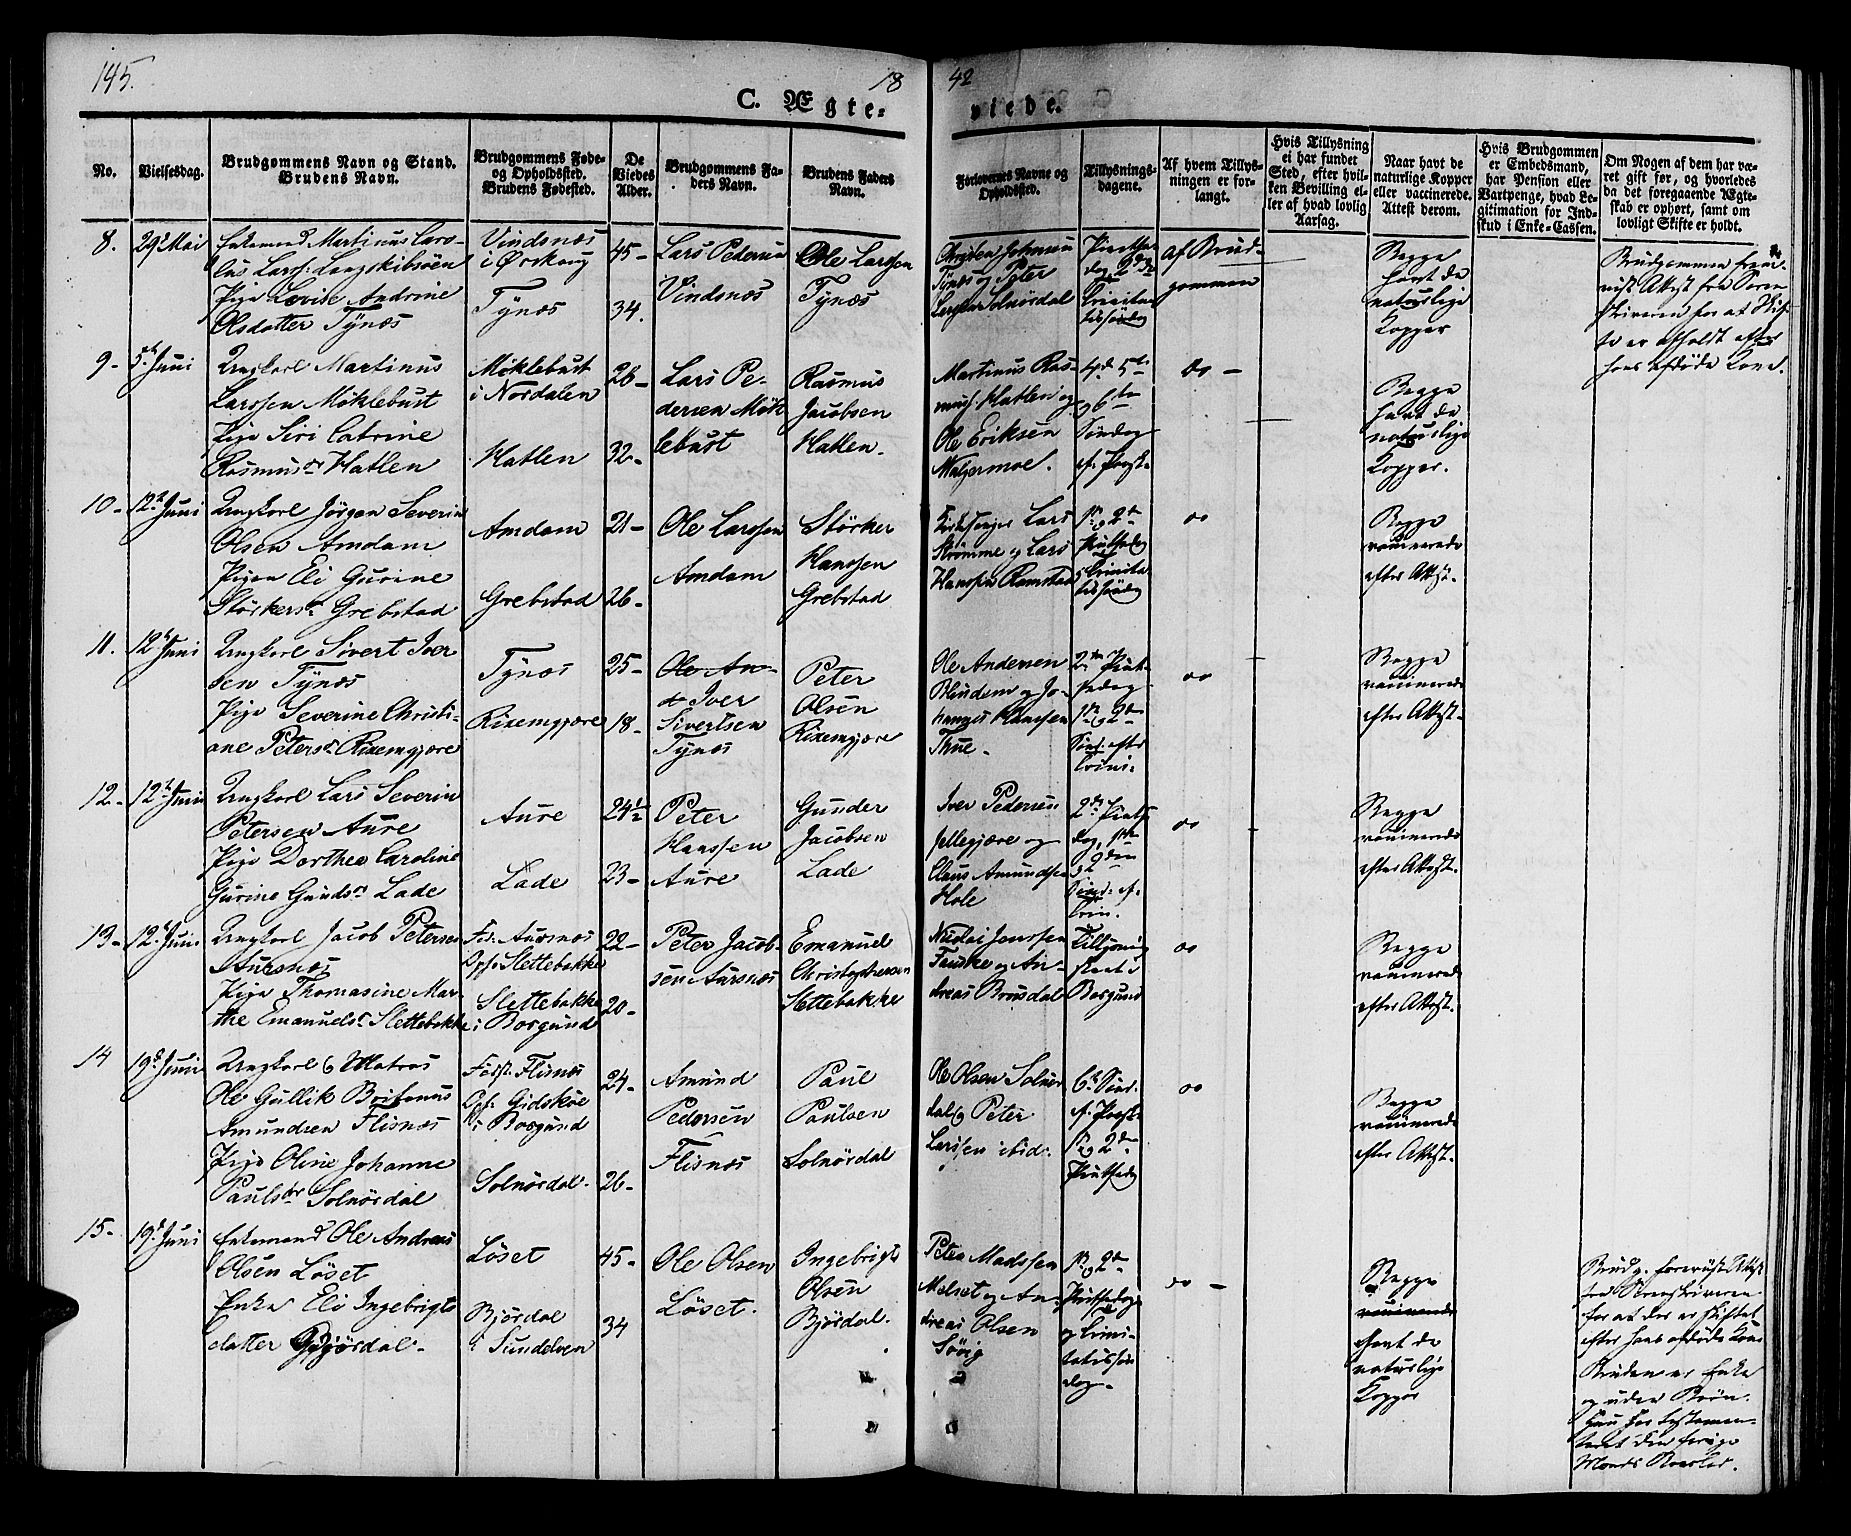 145.
18
42
C. Ægte-
viede.
No.
Vielsesdag.
Brudgommens Navn og Stand.
Brudens Navn.
Brudgommens Føde-
og Opholdssted.
Brudens Fødested.
De
Viedes
Alder.
Brudgommens Fa-
ders Navn.
Brudens Faders
Navn.
Forlovernes Navne og
Opholdssted.
Tillysnings-
dagene.
Af hvem Tillys-
ningen er for-
langt.
Hvis Tillysning
ei har fundet
Sted, efter hvil-
ken Bevilling el-
ler af hvad lovlig
Aarsag.
Naar havt de
naturlige Kopper
eller vaccinerede.
Attest derom.
Hvis Brudgommen
er Embedsmand,
har Pension eller
Vartpenge, hvad Le-
gitimation for Ind-
skud i Enke-Cassen.
Om Nogen af dem har væ-
ret gift før, og hvorledes
da det foregaaende Ægte-
skab er ophørt, samt om
lovligt Skifte er holdt.
8.
29 Mai
Enkemand Martinus Caro-
lus Larss. Langskibsöen
Pige Lovise Andrine
Olsdatter Tÿnæs
Vindsnæs
i Ørskoug
Tÿnæs
45-
34.
Lars Pedersen
Vindsnæs
Ole Larssen
Tÿnæs
Tÿnæs og Peter
Solnördal
af Brud-
gommen
Begge
havt de
naturlige
Kopper
Brudgommen frem-
vist Attest fra Soren-
skriveren for at Skif-
te er afholdt efter
hans afdöde Kone.
9-
5te Juni
Ungkarl Martinus
Larssen Möklebust
Pige Siri Catrine
Rasmusdr Hatlen
Möklebust
i Nordalen
Hatlen
28-
32-
Lars Pe-
dersen Mök
lebust
Rasmus
Jacobsen
Hatlen.
Martinus Ras-
muss. Hatlen og
Ole Eriksen
4de 5te
og 6te
Söndag
do -
Begge
havt de
naturlige
Kopper.
10-
12te Juni
Ungkarl Jörgen Severin
Olsen Amdam
Pigen Eli Gurine
Störkersdr Grebstad
Amdam
Grebstad
21-
26-
Ole Larssen
Amdam
Störker
Hanssen
Grebstad
Kirkesanger Lars
Strömme og Lars
Hanssen Ramstad
1ste og 2den
do
Begge
vaccinerede
efter Attest.
11.
12te Juni
Ungkarl Sivert Iver
sen Tÿnæs
Pige Severine Christi-
ane Petersdr Rixemgjære
Tÿnæs
Rixemgjære
25-
18-
Ole An-
Iver
Sivertsen
Tÿnæs
Peter
Olsen
Rixemgjære
Ole Andersen
Blindem og Jo-
hannes Hanssen
Thue.
2den Pint-
sedag
1ste og 2den
Sönd. efter
Trini.
do
Begge
vaccinerede
efter Attest.
12-
12te Juni
Ungkarl Lars Severin
Petersen Aure
Pige Dorthea Caroline
Gurine Gundersdr Lade
Aure
Lade
24½
23-
Peter
Hanssen
Aure
Gunder
Jacobsen
Lade
Iver Pedersen
Jellegjære og
Claus Amundsen
Hole
2den Pintse
dag, 1ste
og 2den
Sönd. ef.
Trin.
do
Begge
vaccinerede
efter Attest.
13-
12te Juni
Ungkarl Jacob Petersen
Aursnæs
Pige Thomasine Mar-
the Emanuelsdr Slettebakke
Fds. Aursnæs
Oph. Slettebakke
Slettebakke
i Borgund
22-
20-
Peter Jacob-
sen Aursnæs
Emanuel
Christophersen
Slettebakke
Nicolai Jonssen
Fauske og An-
dreas Brusdal
Tillysning
skeet i
Borgund
do
Begge
vaccinerede
efter Attest.
14
19de Juni
Ungkarl & Matros
Ole Gullik Britanus
Amundsen Flisnæs
Pige Oline Johanne
Paulsdr Solnördal
Fdst. Flisnæs
Oph. Gidskoe
i Borgund
Solnördal.
24-
26-
Amund
Pedersen
Flisnæs
Paul
Paulsen
Solnördal
Ole Olsen Solnör-
dal & Peter
Larssen ibid.
6te Sönd.
ef. Paaske
1ste og 2den
Pintsedag
do
Begge
vaccinerede
efter Attest.
15-
19de Juni
Enkemand Ole Andreas
Olsen Löset
Enke Eli Ingebrigts
datter Björdal.
Löset
Björdal
i Sundelven
45-
34
Ole Olsen
Löset.
Ingebrigt
Olsen
Björdal.
Peter Madssen
Melset og An-
dreas Olsen
Sövig
1ste og 2den
Pintsedag
og Trini-
tatissön
dag.
do -
Begge
vaccinerede
havt de
naturlige
Kopper
Brudg. foreviist Attest
fra Sorenskriveren
for at der er skiftet
efter hans afdöde Kone
Bruden er Enke
og uden Börn.